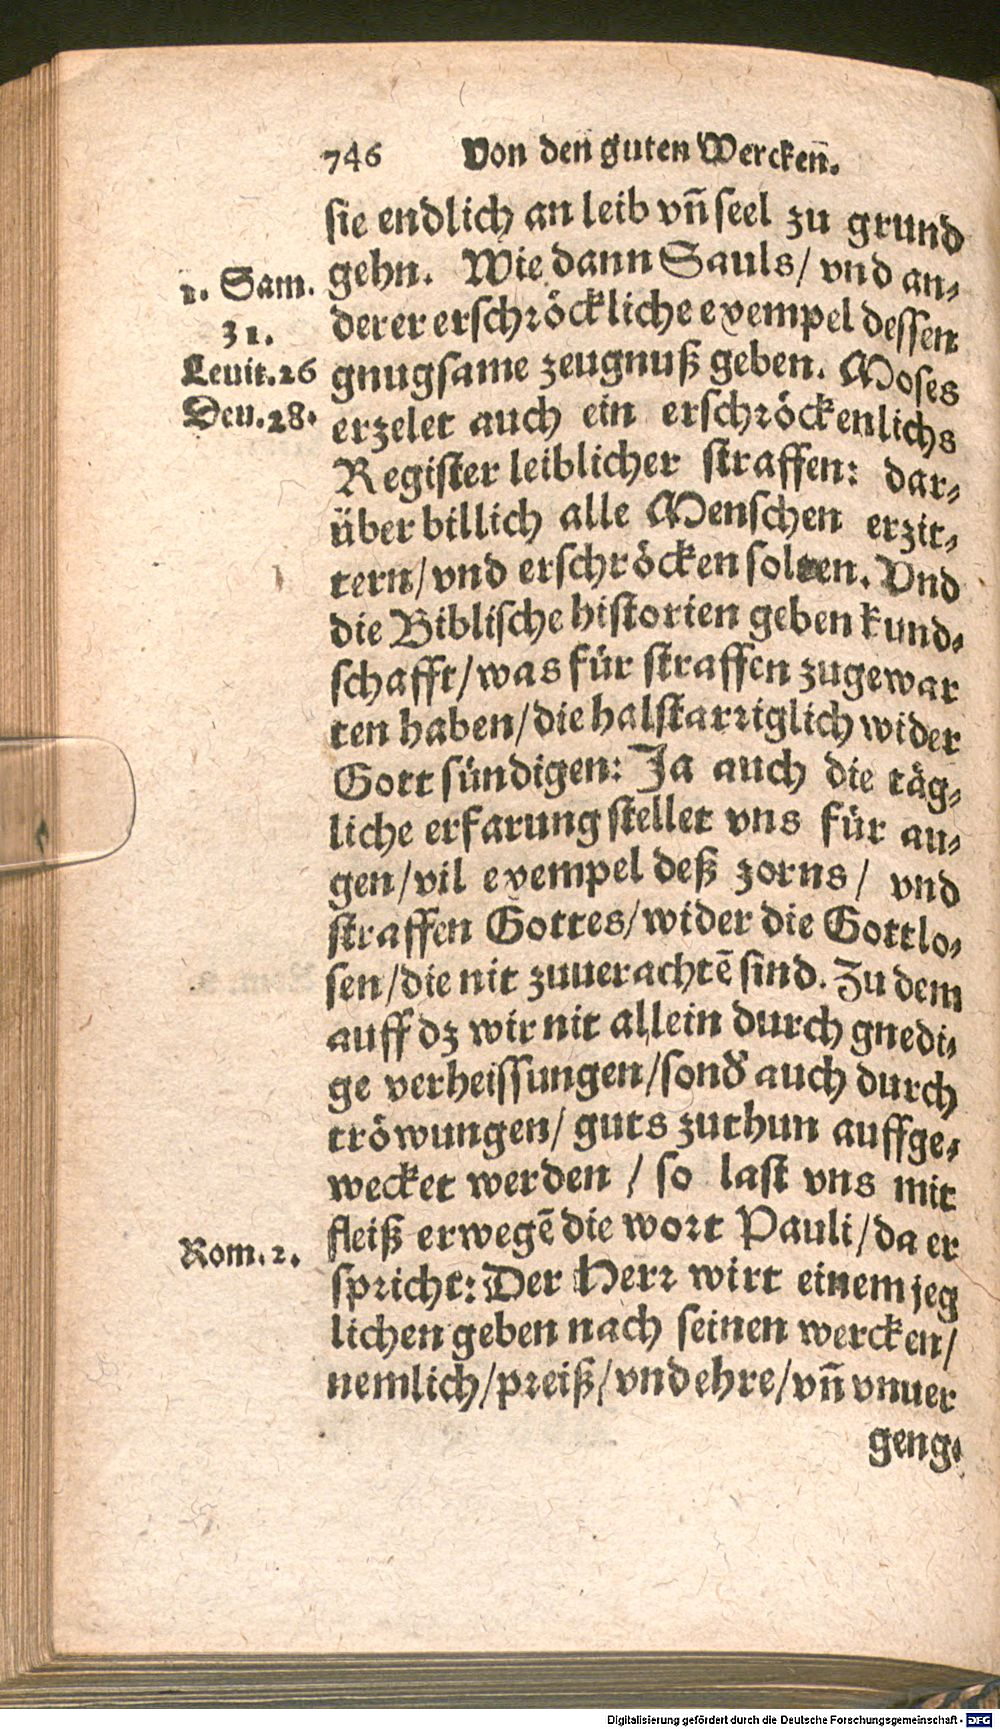 746 Von den guten Wercken̄.
sie endlich an leib vn̄ seel zu grund
gehn. Wie dann Sauls/ vnd an⸗
1. Sam.
31.
Leuit. 26
Deu. 28.
derer erschröckliche exempel dessen
gnugsame zeugnuß geben. Moses
erzelet auch ein erschröckenlichs
Register leiblicher straffen: dar⸗
über billich alle Menschen erzit⸗
tern/ vnd erschröcken solten. Vnd
die Biblische historien geben kund⸗
schafft/ was für straffen zugewar
ten haben/ die halstarriglich wider
Gott sündigen: Ja auch die täg⸗
liche erfarung stellet vns für au⸗
gen/ vil exempel deß zorns/ vnd
straffen Gottes/ wider die Gottlo⸗
sen/ die nit zuuerachtē sind. Zu dem
auff dz wir nit allein durch gnedi⸗
ge verheissungen/ sond̓ auch durch
tröwungen/ guts zuthun auffge⸗
wecket werden / so last vns mit
fleiß erwegē die wort Pauli/ da er
Rom. 2.
spricht: Der Herr wirt einem jeg
lichen geben nach seinen wercken/
nemlich/ preiß/ vnd ehre/ vn̄ vnuer
geng⸗
Digitalisierung gefördert durch die Deutsche Forschungsgemeinschaft - DFG